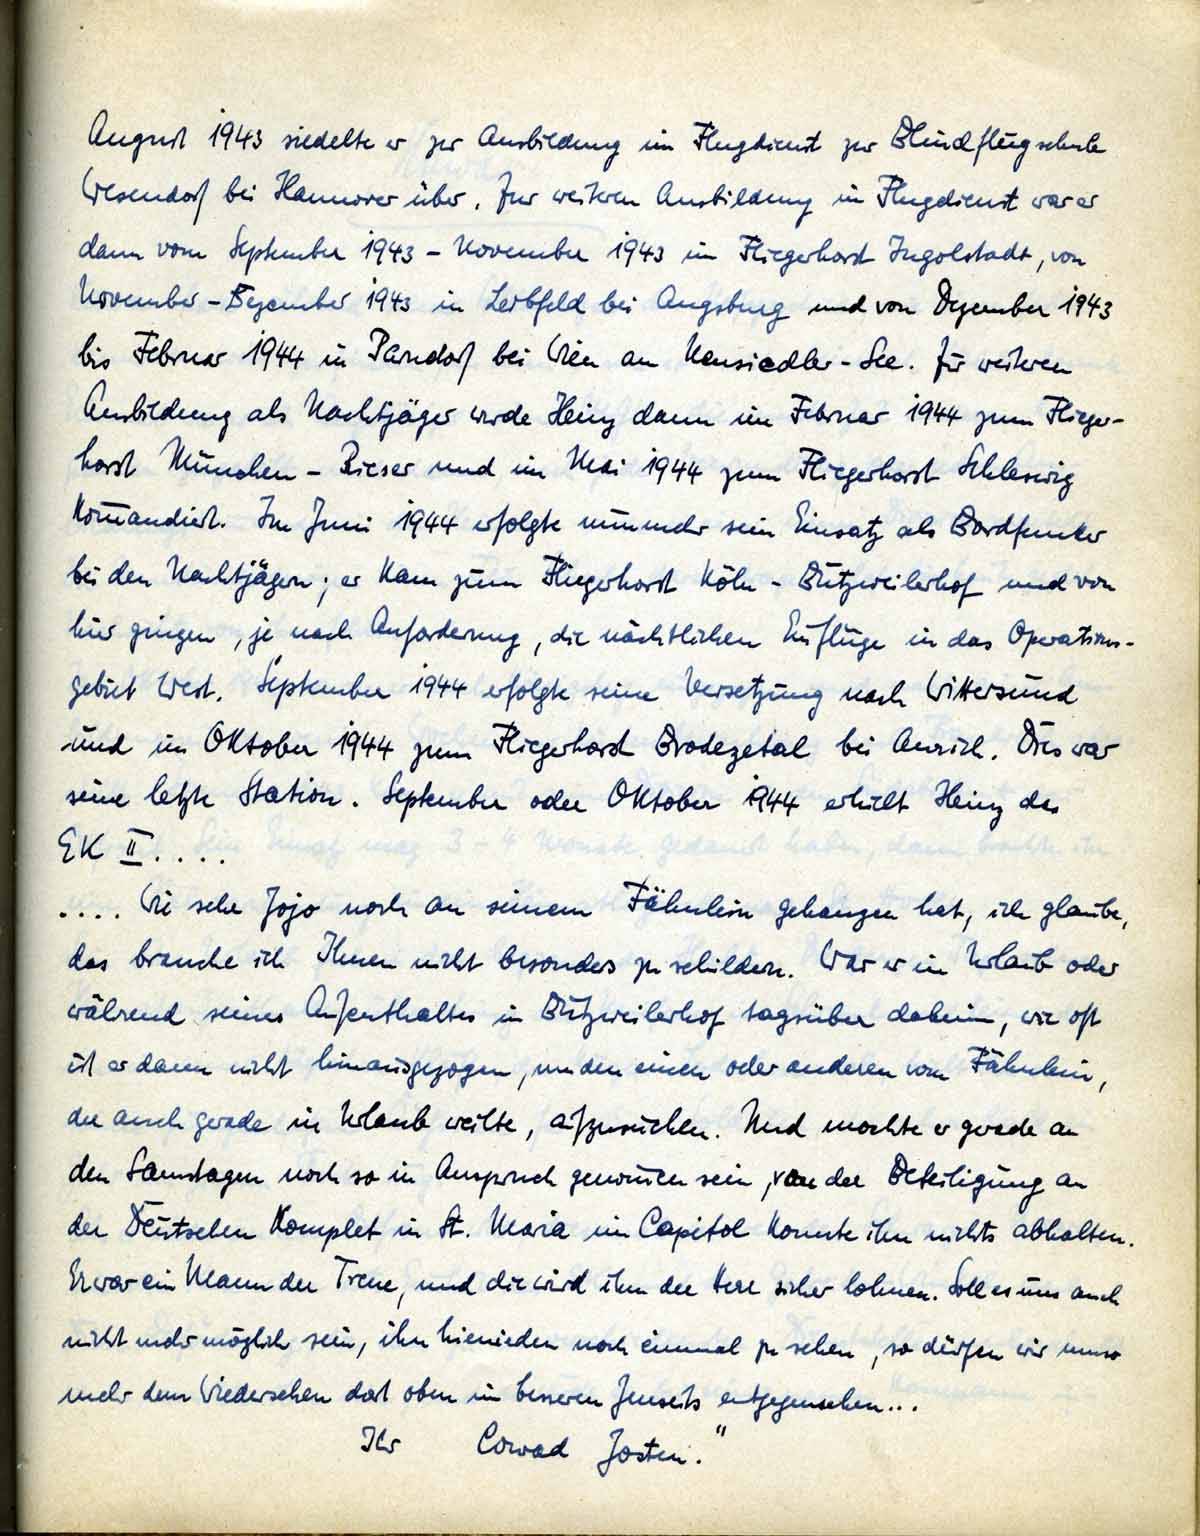 August 1943 siedelte er zur Ausbildung im Flugdienst zur Blindflugschule
Wesendorf bei Hannover über. Zur weiteren Ausbildung im Flugdienst war er
dann vom September 1943 - November 1943 im Fliegerhorst Ingolstadt, von
November - Dezember 1943 in Leibfeld bei Augsburg und von Dezember 1943
bis Februar 1944 in Parndorf bei Wien am Neusiedler-See. Zur weiteren
Ausbildung als Nachtjäger wurde Heinz dann im Februar 1944 zum Flieger-
horst München - Rieser und im Mai 1944 zum Fliegerhorst Schleswig
komandiert. Im Juni 1944 erfolgte nunmehr sein Einsatz als Bordfunker
bei den Nachtjägern; er kam zum Fliegerhorst Köln - Butzweilerhof und von
hier gingen, je nach Anforderung, die nächtlichen Einflüge in das Operations-
gebiet West. September 1944 erfolgte seine Versetzung nach Wittersund
und im Oktober 1944 zum Fliegerhorst Brodezetal bei Aurich. Dies war
seine letzte Station. September oder Oktober 1944 erhielt Heinz das
EK II....
.... Wie sehr Jojo noch an seinem Fähnlein gehangen hat, ich glaube,
das brauche ich Ihnen nicht besonders zu schildern. War er in Urlaub oder
während seines Aufenthaltes in Butzweilerhof tagsüber daheim, wie oft
ist er dann nicht hinausgezogen, um den einen oder anderen vom Fähnlein,
der auch gerade in Urlaub weilte, aufzusuchen. Und mochte er gerade an
den Samstagen noch so in Anspruch genommen sein, von der Beteiligung an
der Deutschen Komplet in St. Maria im Capitol konnte ihn nichts abhalten.
Er war ein Mann der Treue, und die wird ihm der Herr sicher lohnen. Soll es uns auch
nicht mehr möglich sein, ihn hienieden noch einmal zu sehen, so dürfen wir umso
mehr dem Wiedersehen dort oben im besseren Jenseits entgegensehen...
Ihr Conrad Josten."